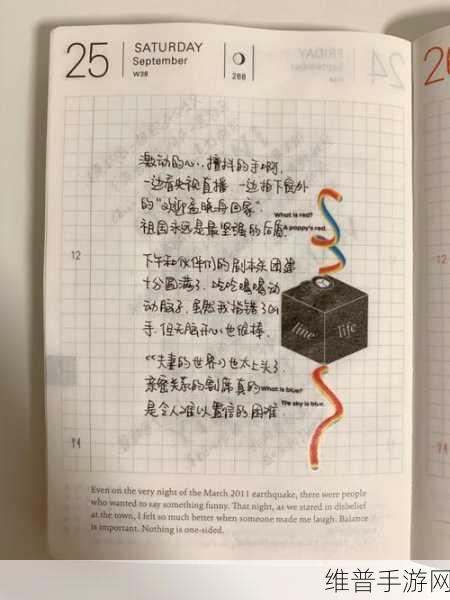 25
SATURDAY
September
W38
268
激动的心,颤抖的手啊,
一边看央视直播 一边拍下窗外
的"欢迎孟晚舟回家".
祖国永远是最坚强的后盾.
What is red?
A poppy's red.
12
下午和伙伴们的剧本杀团建
十分圆满了. 吃吃喝喝动
动脑子. 虽然我指错了凶
手. 但无脑开心也很棒.
line life
《夫妻的世界》也太上头了.
亲密关系的割席真的
What is blue?
The sky is blue.
是令人难以置信的困难.
Even on the very night of the March 2011 earthquake, there were people
who wanted to say something funny. That night, as we stared in disbelief
at the town, I felt so much better when someone made me laugh. Balance
is important. Nothing is one-sided.
维普手游网